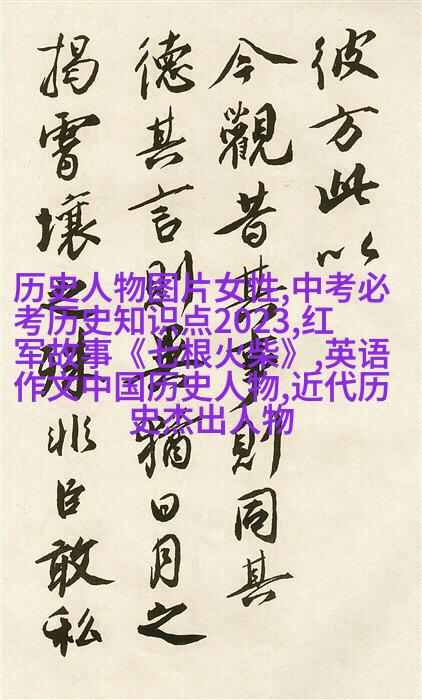 彼方此以
今觀昔其事則同其
德其言則猶日月之
揭霄壤之殊非臣敢私
历史人物图片女性,中考必
考历史知识点2023,红
军故事《七根火柴》,英语
作文中国历史人物,近代历
史杰出人物